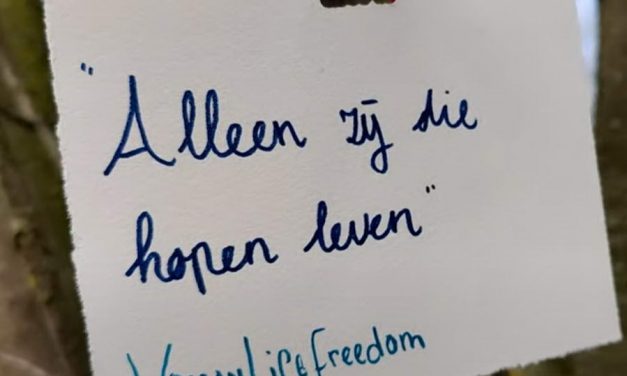 "Alleen zij die
hopen leven"
LifeFreedom